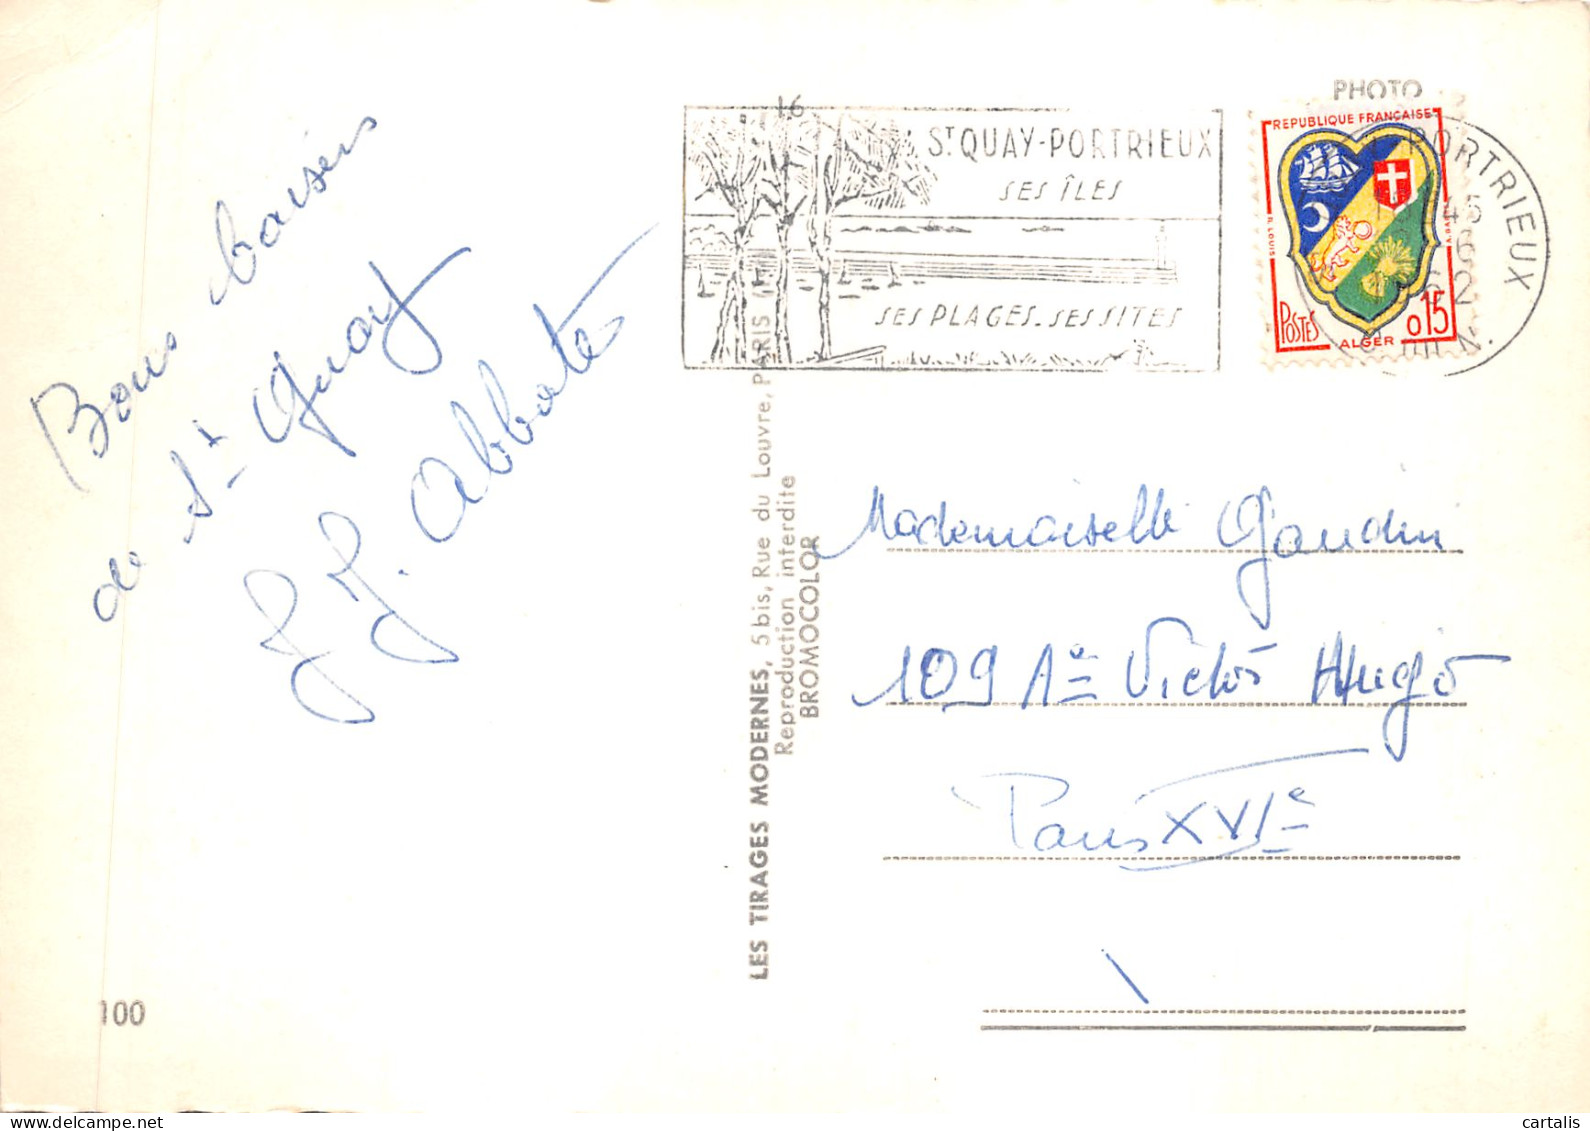 Bons baisers
de St Quay
J. J. Abbate
100
LES TIRAGES MODERNES, 5 bis, Rue du Louvre, PARIS
Reproduction interdite
BROMOCOLOR
16
ST QUAY-PORTRIEUX
SES ÎLES
SES PLAGES. SES SITES
PHOTO
REPUBLIQUE FRANÇAISE
POSTES
ALGER
0,15
PORTRIEUX
45
6
62
Mademoiselle Gaudin
109 Ae Victor Hugo
Paris XVIe
cartalis
delcampe.net